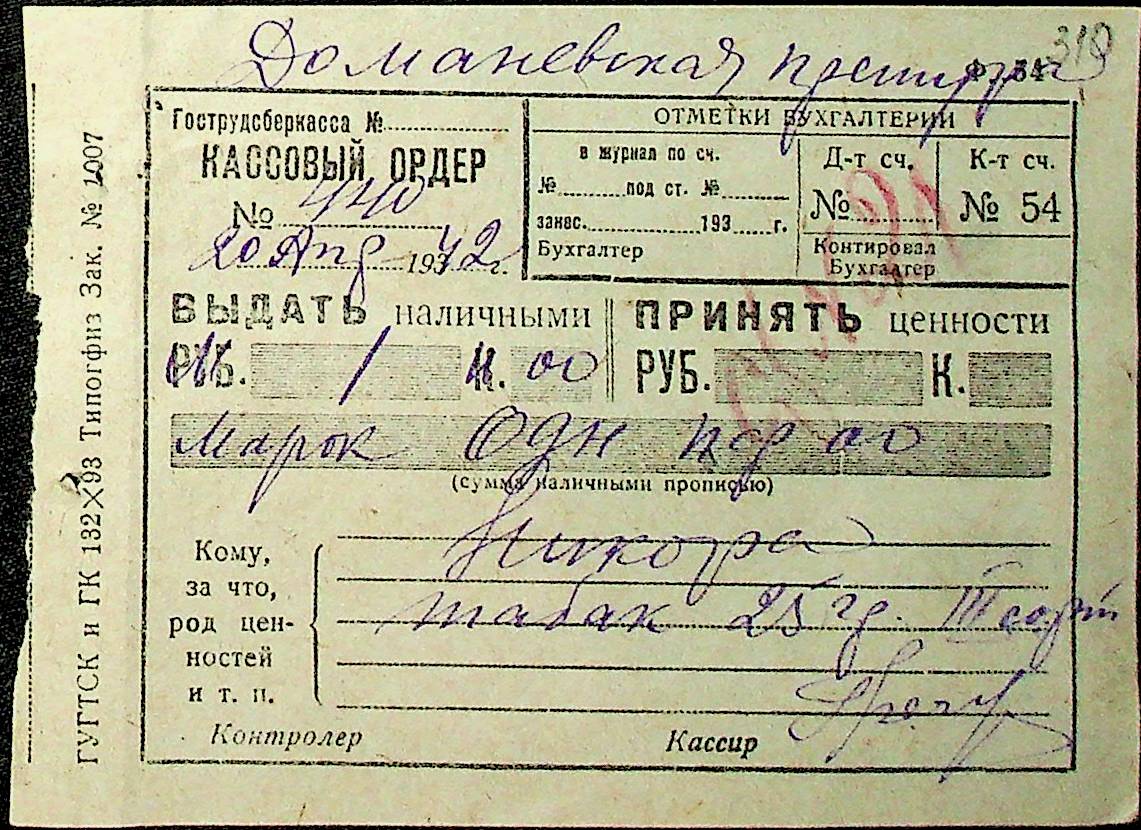 310
Доманевская претура
Ф. № 34
Гострудсберкасса №
КАССОВЫЙ ОРДЕР
№ 440
20 Апр 1942 г.
ОТМЕТКИ БУХГАЛТЕРИИ
в журнал по сч.
№ под ст. №
занес. 193 г.
Бухгалтер
Д-т сч.
№
К-т сч.
№ 54
Контировал
Бухгалтер
ВЫДАТЬ наличными
РУБ. 1 К. 00
ПРИНЯТЬ ценности
РУБ. К.
Марок Одн пф 00
(сумма наличными прописью)
Кому,
за что,
род цен-
ностей
и т. п.
Никора
табак 25 гр. III сорт
Контролер
Кассир
ГУГТСК и ГК 132×93 Типогфиз Зак. № 1007